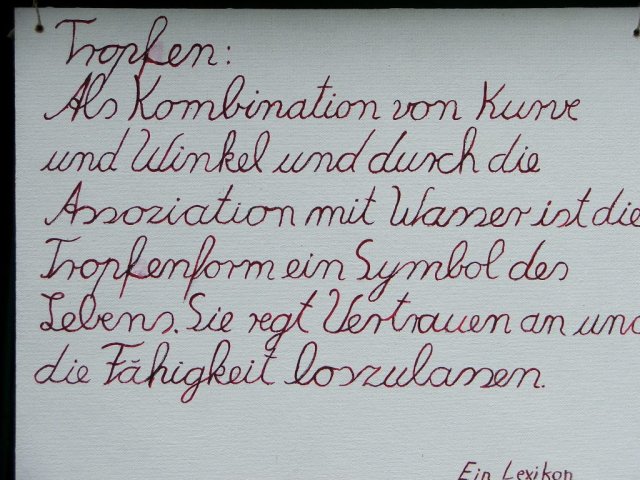 Tropfen:
Als Kombination von Kurve
und Winkel und durch die
Assoziation mit Wasser ist die
Tropfenform ein Symbol des
Lebens. Sie regt Vertrauen an und
die Fähigkeit loszulassen.
Ein Lexikon